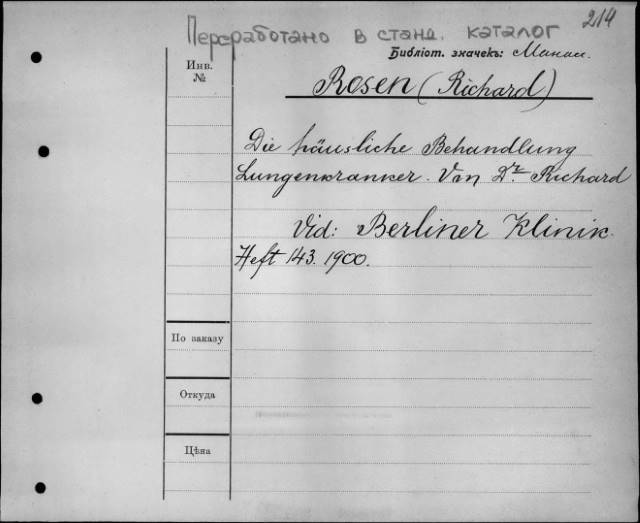 214
Переработано в станд. каталог
Библіот. значекъ:
Инв.
№
Rosen (Richard)
Die häusliche Behandlung
Lungenkranker. Von Dr. Richard
Vid: Berliner Klinik.
Heft 143. 1900.
По заказу
Откуда
Цѣна